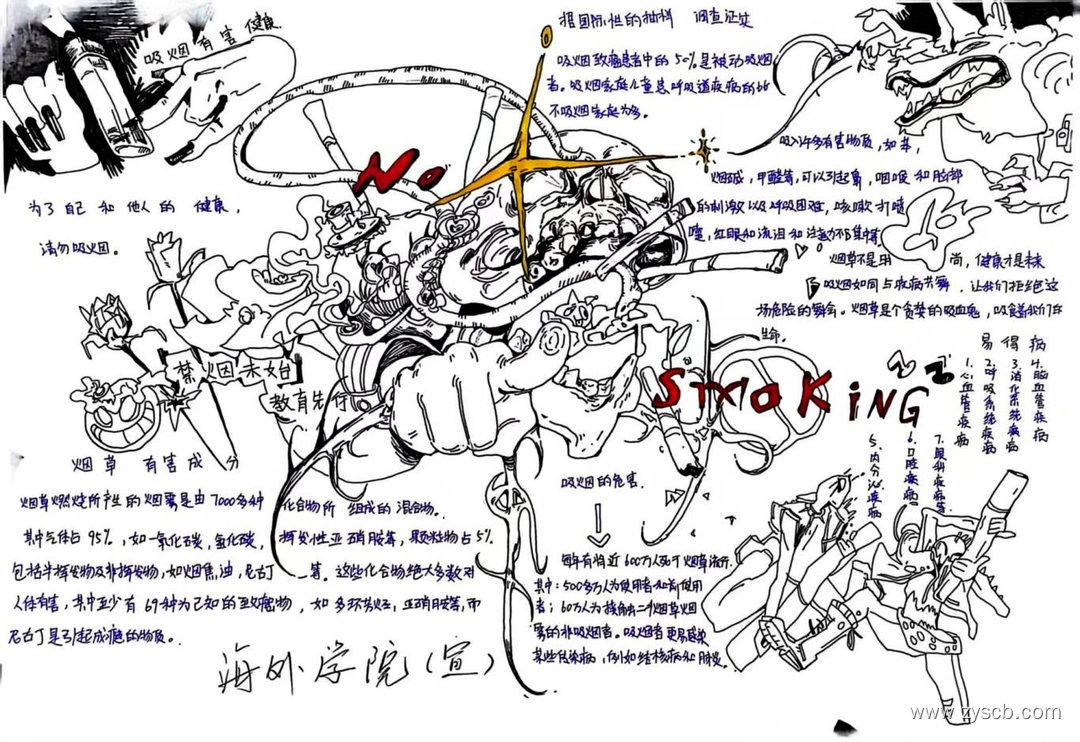 吸烟有害健康
为了自己和他人的健康，
请勿吸烟。
No
据国际性的抽样 调查证实
吸烟致癌患者中的50%是被动吸烟
者。吸烟家庭儿童患呼吸道疾病的比
不吸烟家庭为多。
吸入许多有害物质，如苯，
烟碱，甲醛等，可以引起鼻，咽喉和脸部
的刺激以及呼吸困难，咳嗽打喷
嚏，红眼和流泪和注意力不集中等
烟草不是时尚，健康才是未来
吸烟如同与疾病共舞，让我们拒绝这
场危险的舞会。烟草是个贪婪的吸血鬼，吸食着我们的
生命。
SMOKiNG
易得病
1.心血管疾病
2.呼吸系统疾病
3.消化系统疾病
4.脑血管疾病
5.内分泌疾病
6.口腔疾病
7.眼科疾病等
禁烟未始
教育先行。
烟草 有害成分
烟草燃烧所产生的烟雾是由7000多种化合物所组成的混合物。
其中气体占95%，如一氧化碳，氢化碳，挥发性亚硝胺等，颗粒物占5%
包括半挥发物及非挥发物，如烟焦油，尼古丁一等。这些化合物绝大多数对
人体有害，其中至少有69种为已知的致癌物，如多环芳烃，亚硝胺等，而
尼古丁是引起成瘾的物质。
吸烟的危害
每年有将近600万人死于烟草流行
其中：500多万人为使用者和前使用
者；60万人为接触二手烟草烟
雾的非吸烟者。吸烟者更易感染
某些传染病，例如结核病和肺炎。
海外学院（宣）
www.zyscb.com